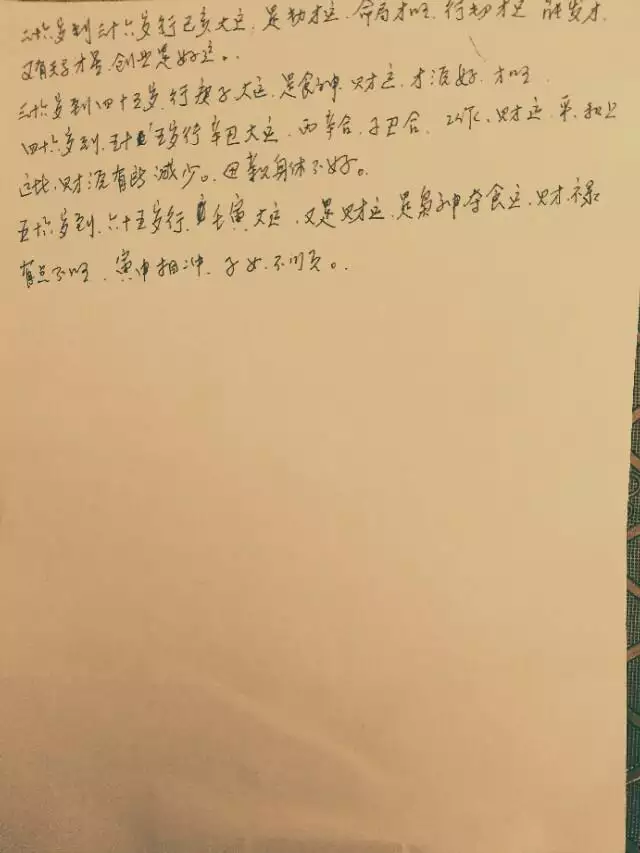 二十六岁到三十六岁行己亥大运,是劫才运,命局才旺,行劫才运能发才,
又有天子才星,创业是好运。
三十六岁到四十五岁,行庚子大运,是食神,财才运,才源好,才旺
四十六岁到,五十五岁行辛丑大运,丙辛合,子丑合,财才运,平,和上
这比,财源有所减少。母亲身体不好。
五十六岁到,六十五岁行,壬寅大运,又是财才运,是枭神夺食运,财才禄
有点不旺,寅申相冲,子女不顺。